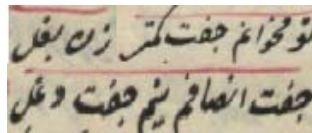 تو مخوانم جفت کمتر زن بغل
جفت انصافم نیم جفت دغل